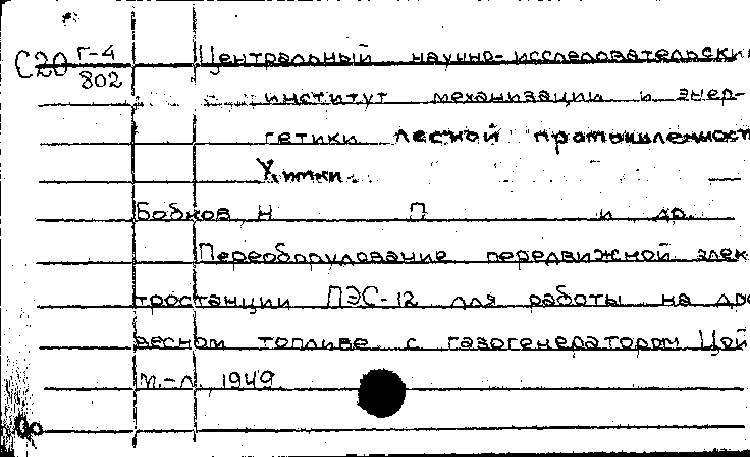 С20 Г-4/802 Центральный научно-исследовательский
институт механизации и энер-
гетики лесной промышленност
Химки.
Бобков, Н П и др.
Переоборудование передвижной элек
тростанции ПЭС-12 для работы на дре
весном топливе с газогенератором
М.-Л., 1949.